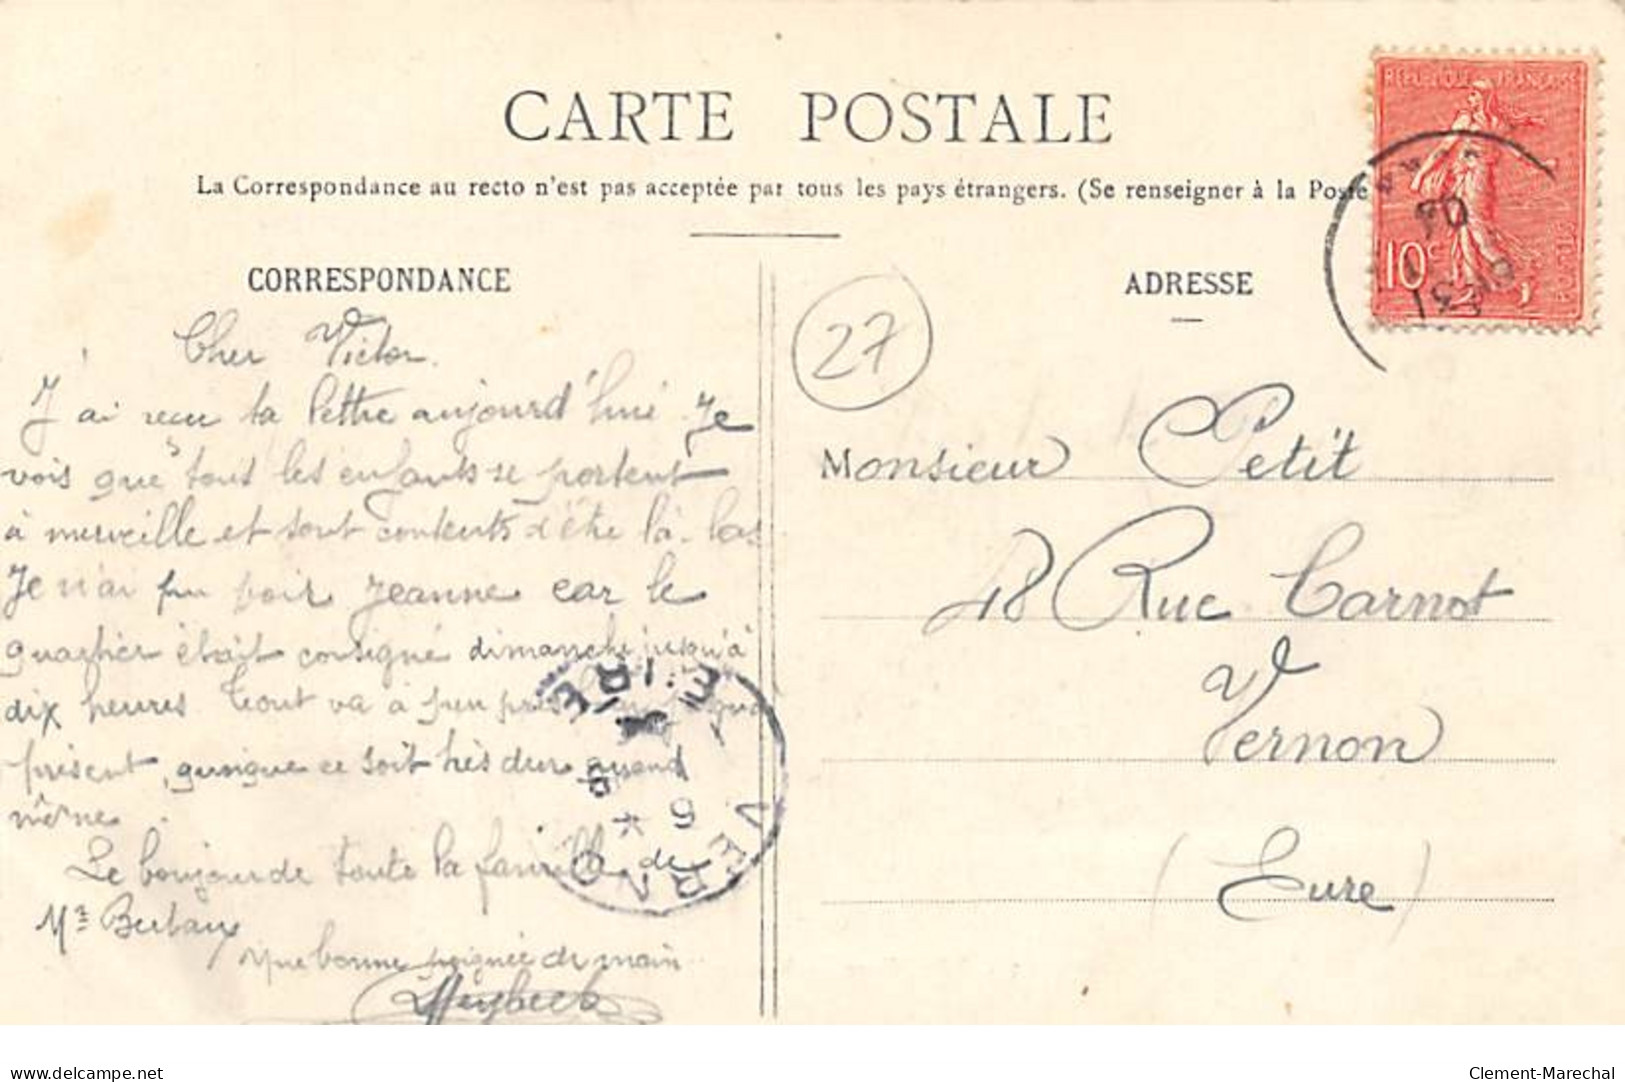 CARTE POSTALE
La Correspondance au recto n'est pas acceptée par tous les pays étrangers. (Se renseigner à la Poste
REPUBLIQUE FRANÇAISE
10c
POSTES
04
CORRESPONDANCE
ADRESSE
27
Cher Victor.
J'ai reçu ta lettre aujourd'hui Je
vois que tous les enfants se portent
à merveille et sont contents d'être là-bas
Je n'ai pu voir Jeanne car le
quartier était consigné dimanche jusqu'à
dix heures. Tout va à peu près
présent, quoique ce soit très dur quand
même.
Le bonjour de toute la famille de
Mr
Une bonne poignée de main
Monsieur Petit
48 Rue Carnot
Vernon
(Eure)
VERNON
EURE
delcampe.net
Clement-Marechal